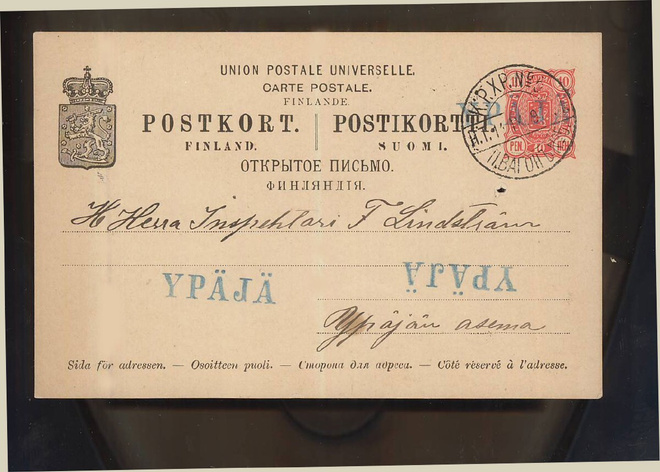 UNION POSTALE UNIVERSELLE.
CARTE POSTALE.
FINLANDE.
POSTKORT. POSTIKORTTI.
FINLAND. SUOMI.
ОТКРЫТОЕ ПИСЬМО.
ФИНЛЯНДІЯ.
10
PEN.
YPÄJÄ
H Herra Inspehtori F Lindström
YPÄJÄ YPÄJÄ
Ypäjän asema
Sida för adressen. — Osoitteen puoli. — Сторона для адреса. — Côté réservé à l'adresse.